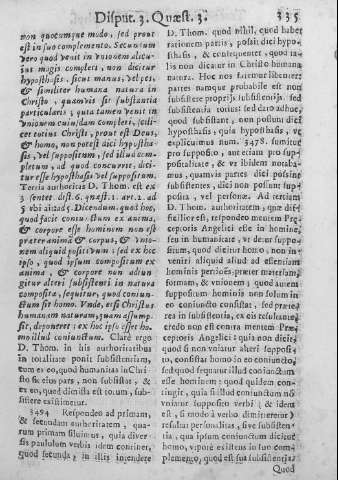 Disput. 3. Quæst. 3. 335
non quocumque modo, sed prout
est in suo complemento. Secundum
vero quod venit in vnionem alicu-
ius magis completi, non dicitur
hypothasis. sicut manus, vel pes,
& similiter humana natura in
Christo, quamvis sit substantia
particularis, quia tamen venit in
vnionem cuiusdam completi, scili-
cet totius Christi, prout est Deus,
& homo, non potest dici hypotha-
sis, vel suppositum, sed illud com-
pletum, ad quod concurrit, dici-
tur esse hypothasis vel suppositum.
Tertia authoritas D. Thom. est ex
3 sentent dist. 6. quæst. 1. art. 2. ad
5 vbi ait ad 5 Dicendum, quod hoc,
quod facit coniunctum ex anima,
& corpore esse hominem non est
præter anima & corpus, & vnio-
nem aliquid positivum; sed ex hoc
ipso, quod ipsum compositum ex
anima, & corpore non adiun-
gitur alteri subsistenti in natura
composita, sequitur, quod coniun-
ctum sit homo. Vnde, etsi Christus
humanam naturam, quam assump-
sit, deponeret; ex hoc ipso esset ho-
mo illud coniunctum. Clarè ergo
D. Thom. in his authoritatibus
in totalitate ponit subsistentiam,
cum ex eo, quod humanitas in Chri-
sto sit eius pars, non subsistat, &
ex eo, quod dimissa est totum, sub-
sistere existimetur.
3494 Respondeo ad primam,
& secundam authoritatem, qua-
rum primam siluimus, quia diver-
sis paululum verbis idem continet,
quod secunda; in illis intendere
D. Thom. quod nihil, quod habet
rationem partis, possit dici hypo-
thasis, & consequenter, quod ta-
lis non dicatur in Christo humana
natura. Hoc nos fatemur libenter:
partes namque probabile est non
subsistere proprijs subsistentijs. sed
subsistentia totius: sed dato adhuc,
quod subsistant, non possunt dici
hypothasis, quia hypothasis, vt
explicuimus num. 3478. sumitur
pro supposito, aut etiam pro sup-
positalitate, & vt ibidem notaba-
mus, quamvis partes dici possint
subsistentes, dici non possunt sup-
posita, vel personæ. Ad tertiam
D. Thom. authoritatem, quæ dif-
ficilior est, respondeo mentem Præ-
ceptoris Angelici esse in homine,
seu in humanitate, quæ est suppo-
situm, quod dicitur homo, non in-
venirí aliquid aliud ad essentiam
hominis perionis, præter materiam,
formam, & vnionem; quia autem
suppositum hominis non solum in
eo coniuncto consistat, sed præterea
in subsistentia, ex eis resultante,
credo non est contra mentem Præ-
ceptoris Angelici: quia non dicit,
quod si non vniatur alteri supposi-
to, constat homo in eo coniuncto,
sed quod sequatur illud coniunctum
esse hominem: quod quidem con-
tingit, quia si illud coniunctum non
vniatur supposito verbi; & idem
est, si modò à verbo dimitteretur;
resultat personalitas, sive subsisten-
tia, qua ipsum coniunctum dicitur
homo, vtpotè existens in suo com-
plemento, quod est sua subsistentia:
Quod